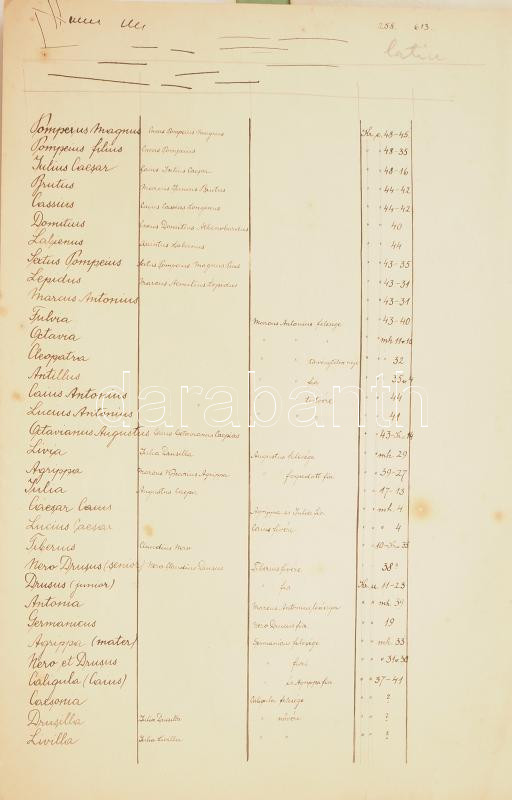 258. 613.
latin
Pomperus Magnus Cneus Pompeius Magnus Kr. e. 48-45.
Pompeius filius Cneus Pompeius " " 48-35
Julius Caesar Caius Julius Caesar " " 48-16
Brutus Marcus Junius Brutus " " 44-42
Cassius Caius Cassius Longinus " " 44-42
Domitius Cneus Domitius Ahenobarbus " " 40
Labienus Quintus Labienus " " 44
Sextus Pompeius Sextus Pompeius Magnus Pius " " 43-35
Lepidus Marcus Aemilius Lepidus " " 43-31
Marcus Antonius " " 43-31
Fulvia Marcus Antonius felesége " " 43-40
Octavia " " " " mh. 11
Cleopatra " " " " 32
Antillus " fia " "
Caius Antonius " testvére " " 44
Lucius Antonius " " " " 41
Octavianus Augustus Caius Octavianus Caepias " " 43-Kr. 14
Livia Julia Drusilla Augustus felesége " " mh. 29
Agrippa Marcus Vipsanius Agrippa " fogadott fia " " 39-27
Julia Augustus leánya " " 17-13
Caesar Caius Agrippa és Julia fia " " mh. 4
Lucius Caesar Caius fivére " " 4
Tiberius Claudius Nero " "
Nero Drusus (senior) Nero Claudius Drusus Tiberius fivére " 38?
Drusus (junior) " fia Kr. u. 11-23
Antonia Marcus Antonius leánya " " mh. 39
Germanicus Nero Drusus fia " " 19
Agrippa (mater) Germanicus felesége " " mh. 33
Nero et Drusus " fiai " " 31
Caligula (Caius) " és Agrippa fia " " 37-41
Caesonia Caligula felesége " " ?
Drusilla Julia Drusilla " nővére " " ?
Livilla Julia Livilla " " " " ?
darabanth